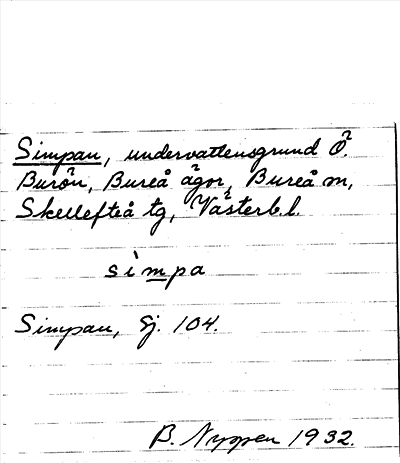 Simpan, undervattensgrund Ö.
Burön, Bureå ägor, Bureå m,
Skellefteå tg, Västerb.l.
sìmpa
Simpan, Sj. 104.
B. Nyppen 1932.